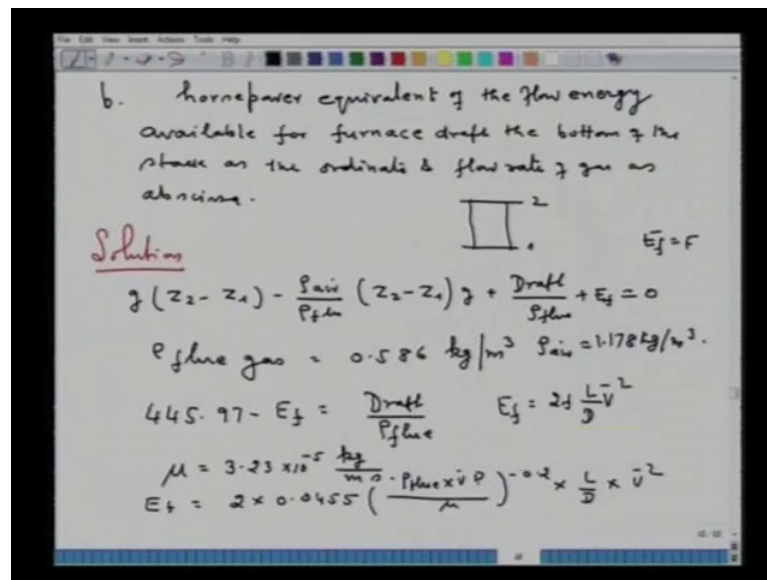 File Edit View Insert Actions Tools Help
b. horsepower equivalent of the flow energy
available for furnace draft the bottom of the
stack as the ordinate & flow rate of gas as
abscissa.
2
1
Solution
Ēf = F
g (Z₂ - Z₁) - ρair/ρflue (Z₂ - Z₁) g + Draft/ρflue + Ef = 0
ρ flue gas = 0.586 kg/m³ ρair = 1.178 kg/m³.
445.97 - Ef = Draft/ρflue Ef = 2f L/D V̄²
μ = 3.23 × 10⁻⁵ kg/m s.
Ef = 2 × 0.0455 (ρflue × v̄ D/μ)^-0.2 × L/D × v̄²